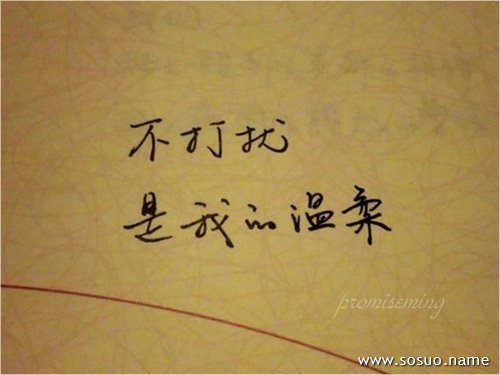 不打扰
是我的温柔
promiseming
www.sosuo.name